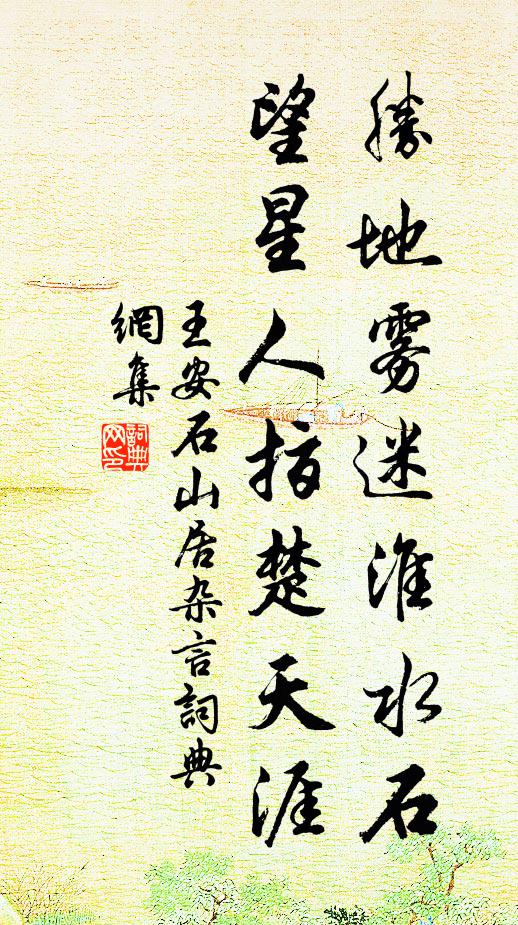 勝地雾迷淮水石
望星人指楚天涯
王安石山居杂言詞典
網集
詞典网印